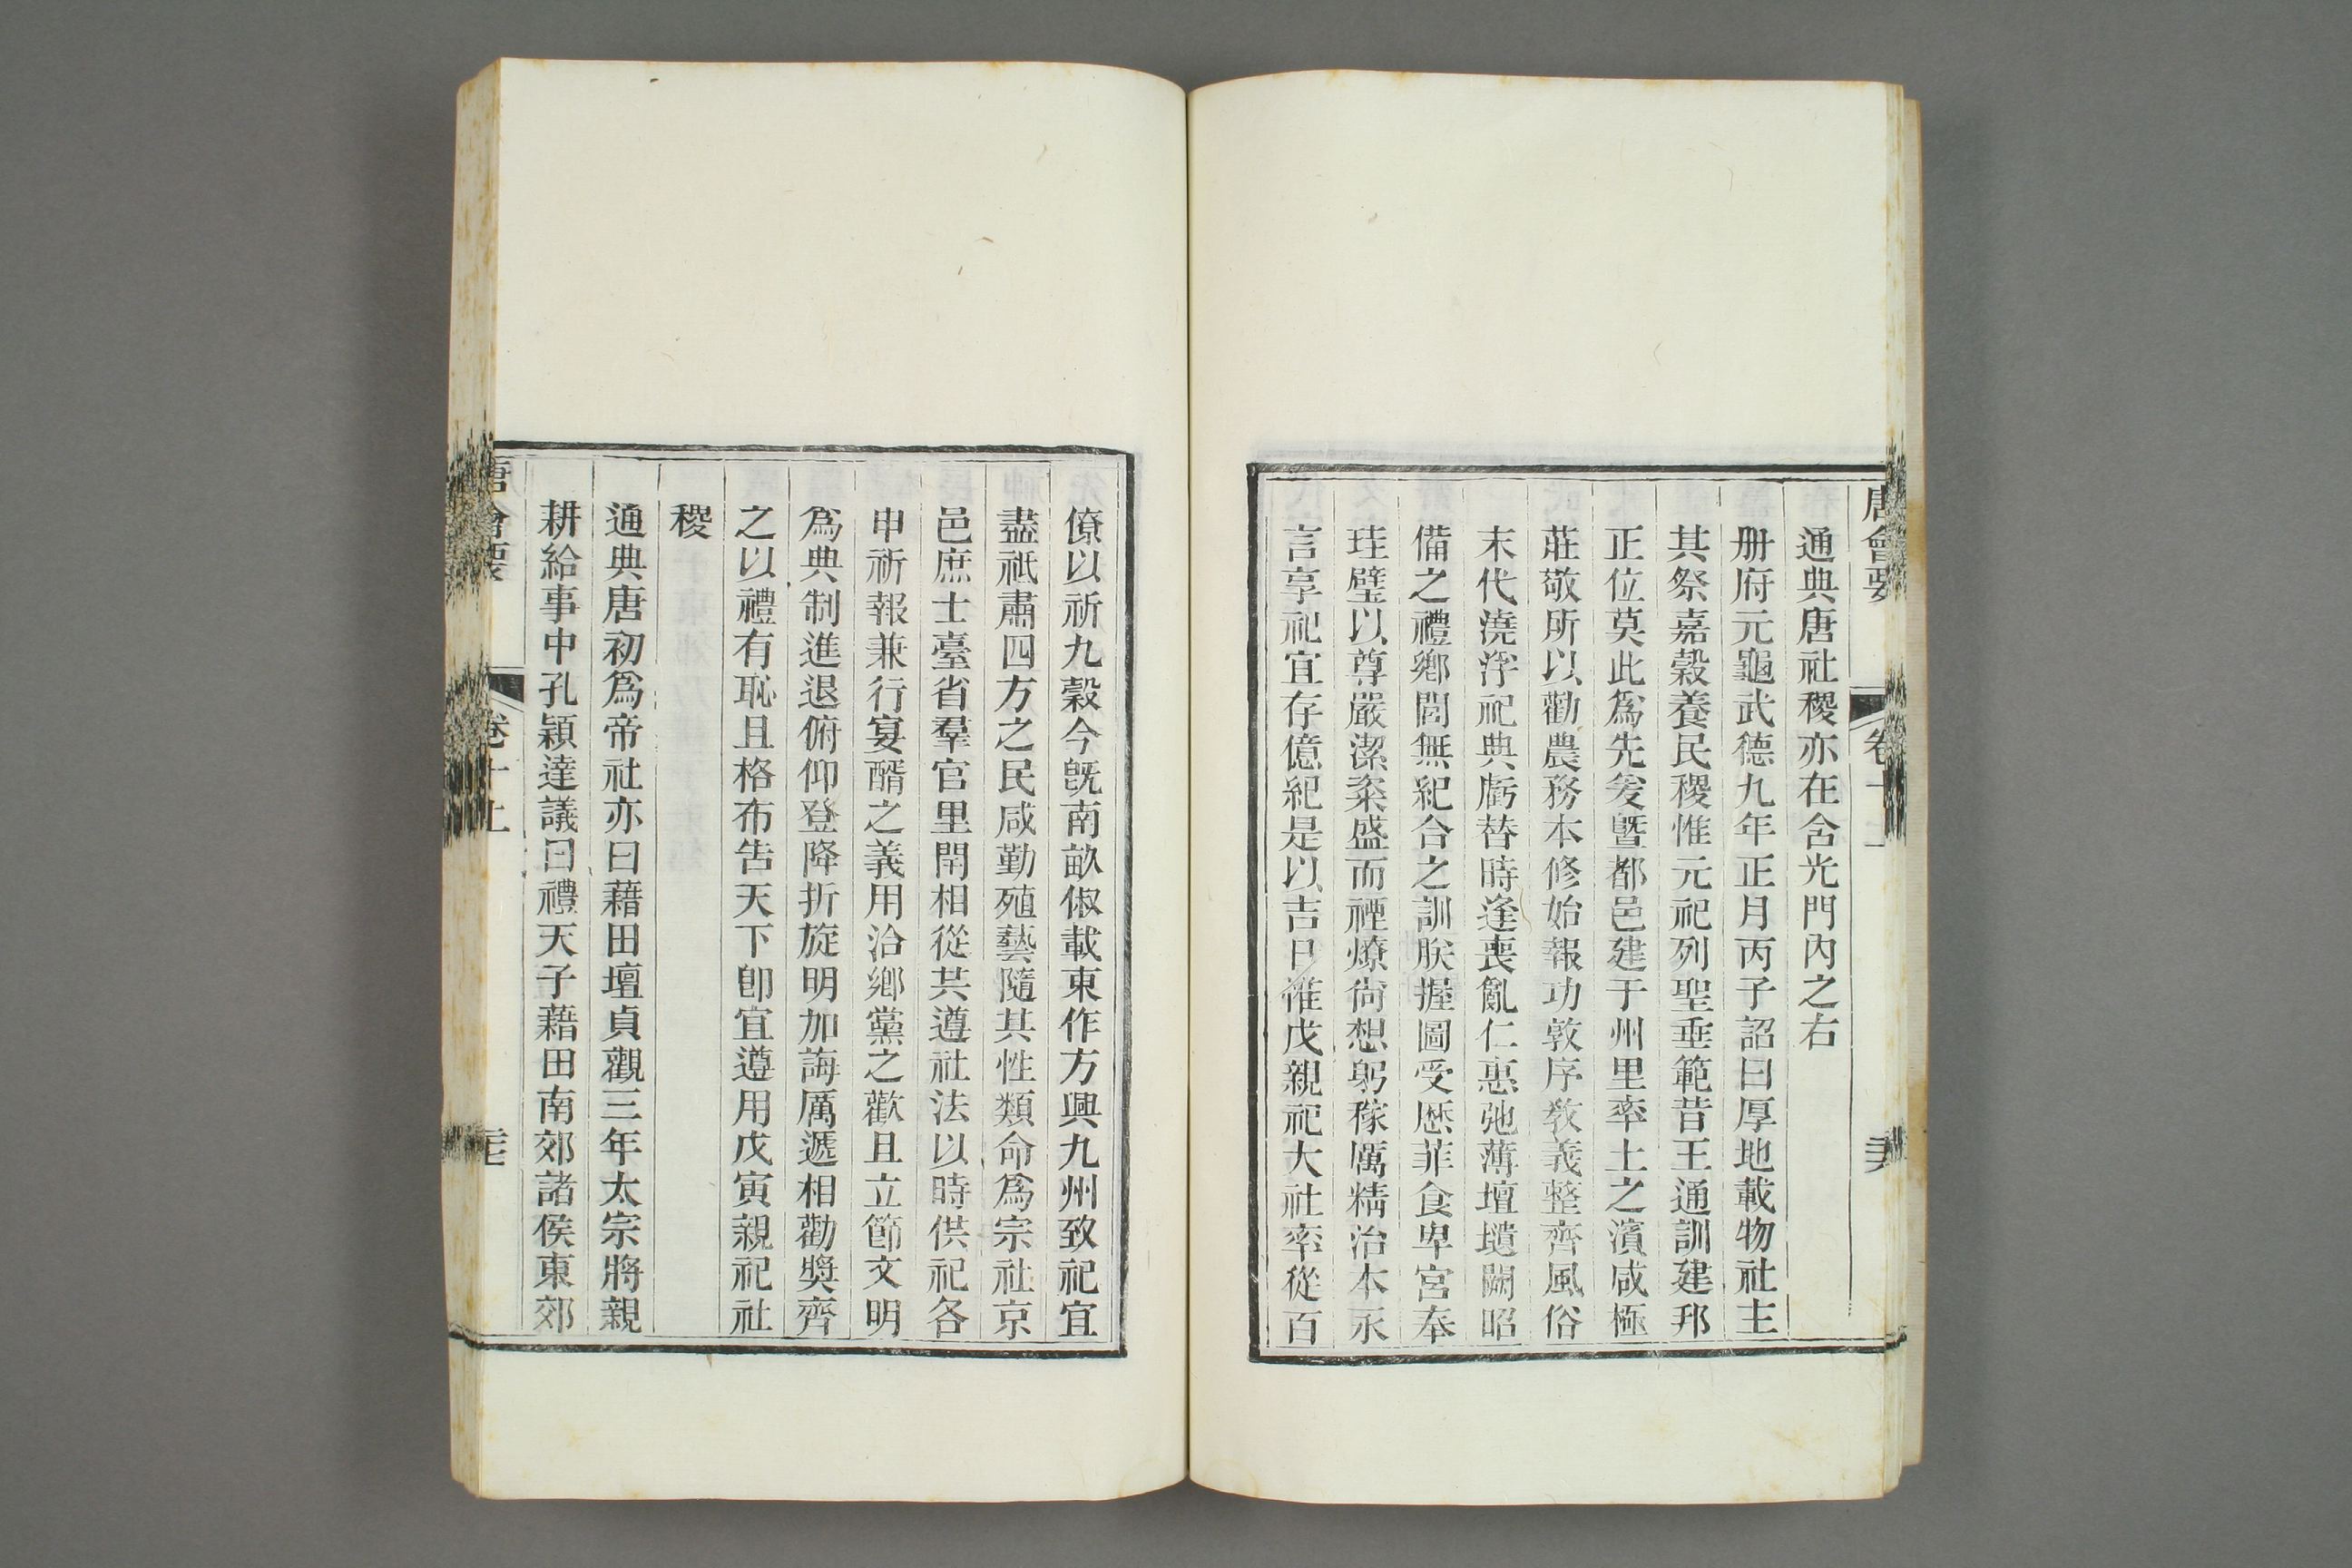 唐會要 卷十上
通典唐社稷亦在含光門內之右
册府元龜武德九年正月丙子詔曰厚地載物社主
其祭嘉穀養民稷惟元祀列聖垂範昔王通訓建邦
正位莫此爲先爰曁都邑建于州里率土之濱咸極
莊敬所以勸農務本修始報功敦序敎義整齊風俗
末代澆浮祀典虧替時逢喪亂仁惠弛薄壇壝闕昭
備之禮鄉閭無紀合之訓朕握圖受歷菲食卑宮奉
珪璧以尊嚴潔粢盛而禋燎尙想躬稼厲精治本永
言享祀宜存億紀是以吉日惟戊親祀大社率從百
僚以祈九穀今旣南畝俶載東作方興九州致祀宜
盡祇肅四方之民咸勤殖藝隨其性類命爲宗社京
邑庶士臺省羣官里閈相從共遵社法以時供祀各
申祈報兼行宴醑之義用洽鄉黨之歡且立節文明
爲典制進退俯仰登降折旋明加誨厲遞相勸獎齊
之以禮有恥且格布告天下卽宜遵用戊寅親祀社
稷
通典唐初爲帝社亦曰藉田壇貞觀三年太宗將親
耕給事中孔穎達議曰禮天子藉田南郊諸侯東郊
唐會要 卷十上